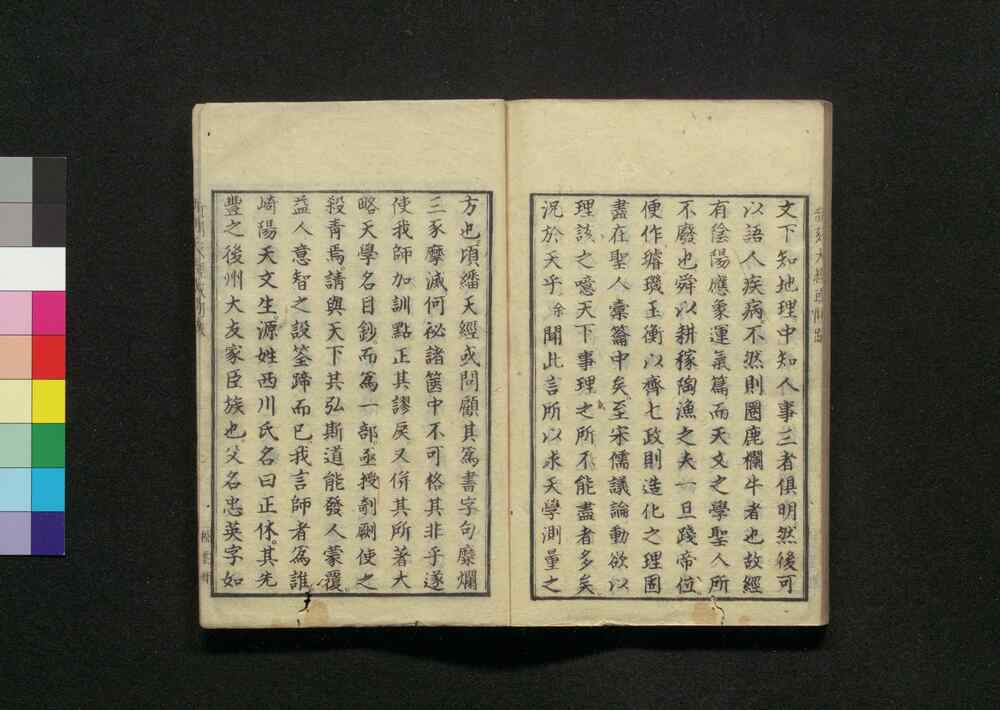 文下知地理中知人事三者俱明然後可
以語人疾病不然則圏鹿欄牛者也故經
有陰陽應象運氣篇而天文之學聖人所
不廢也舜以耕稼陶漁之夫一旦踐帝位
便作璿璣玉衡以齊七政則造化之理固
盡在聖人橐籥中矣至宋儒議論動欲以
理該之噫天下事理之所不能盡者多矣
況於天乎余聞此言所以求天學測量之
方也頃繙天經或問顧其爲書字句糜爛
三豕摩滅何祕諸篋中不可格其非乎遂
使我師加訓點正其謬戾又併其所著大
略天學名目鈔而爲一部亟授剞劂使之
殺青焉請與天下其弘斯道能發人蒙覆
益人意智之設筌蹄而已我言師者爲誰
崎陽天文生源姓西川氏名曰正休其先
豐之後州大友家臣族也父名忠英字如